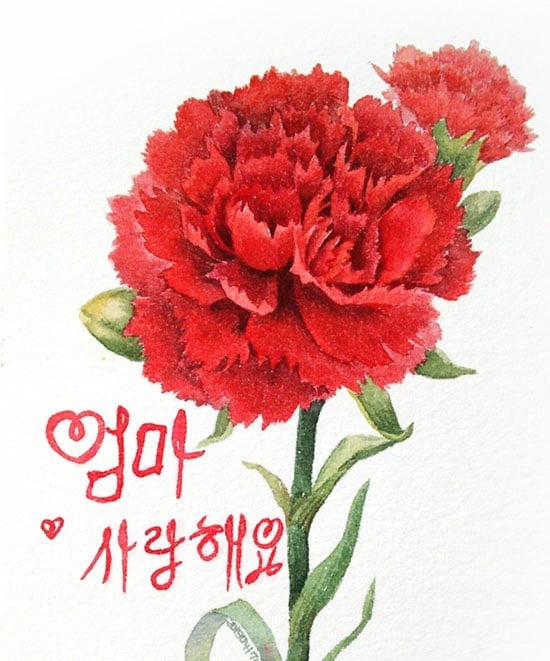 엄마
사랑해요